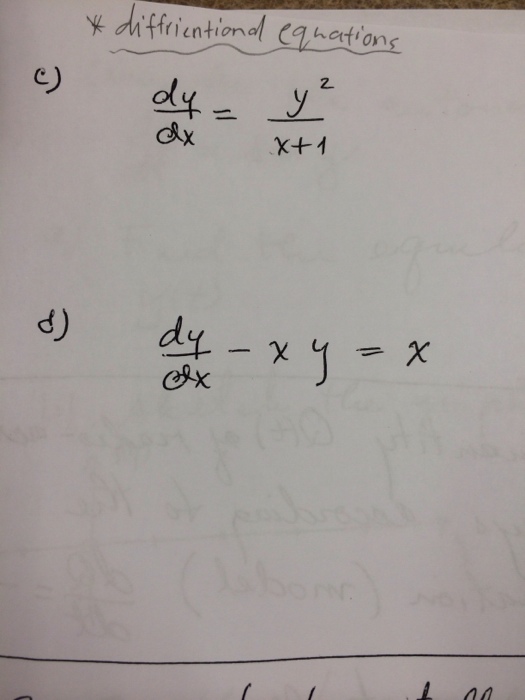 * diffrientional equations
c)
dy/dx = y²/x+1
d)
dy/dx - x y = x